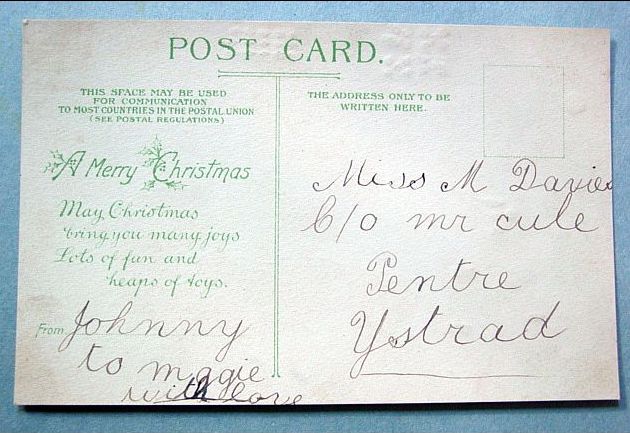 POST CARD.
THIS SPACE MAY BE USED
FOR COMMUNICATION
TO MOST COUNTRIES IN THE POSTAL UNION
(SEE POSTAL REGULATIONS)
THE ADDRESS ONLY TO BE
WRITTEN HERE.
A Merry Christmas
May Christmas
bring you many joys
Lots of fun and
heaps of toys.
From Johnny
to magie
with love
Miss M Davies
C/o mr cule
Pentre
Ystrad